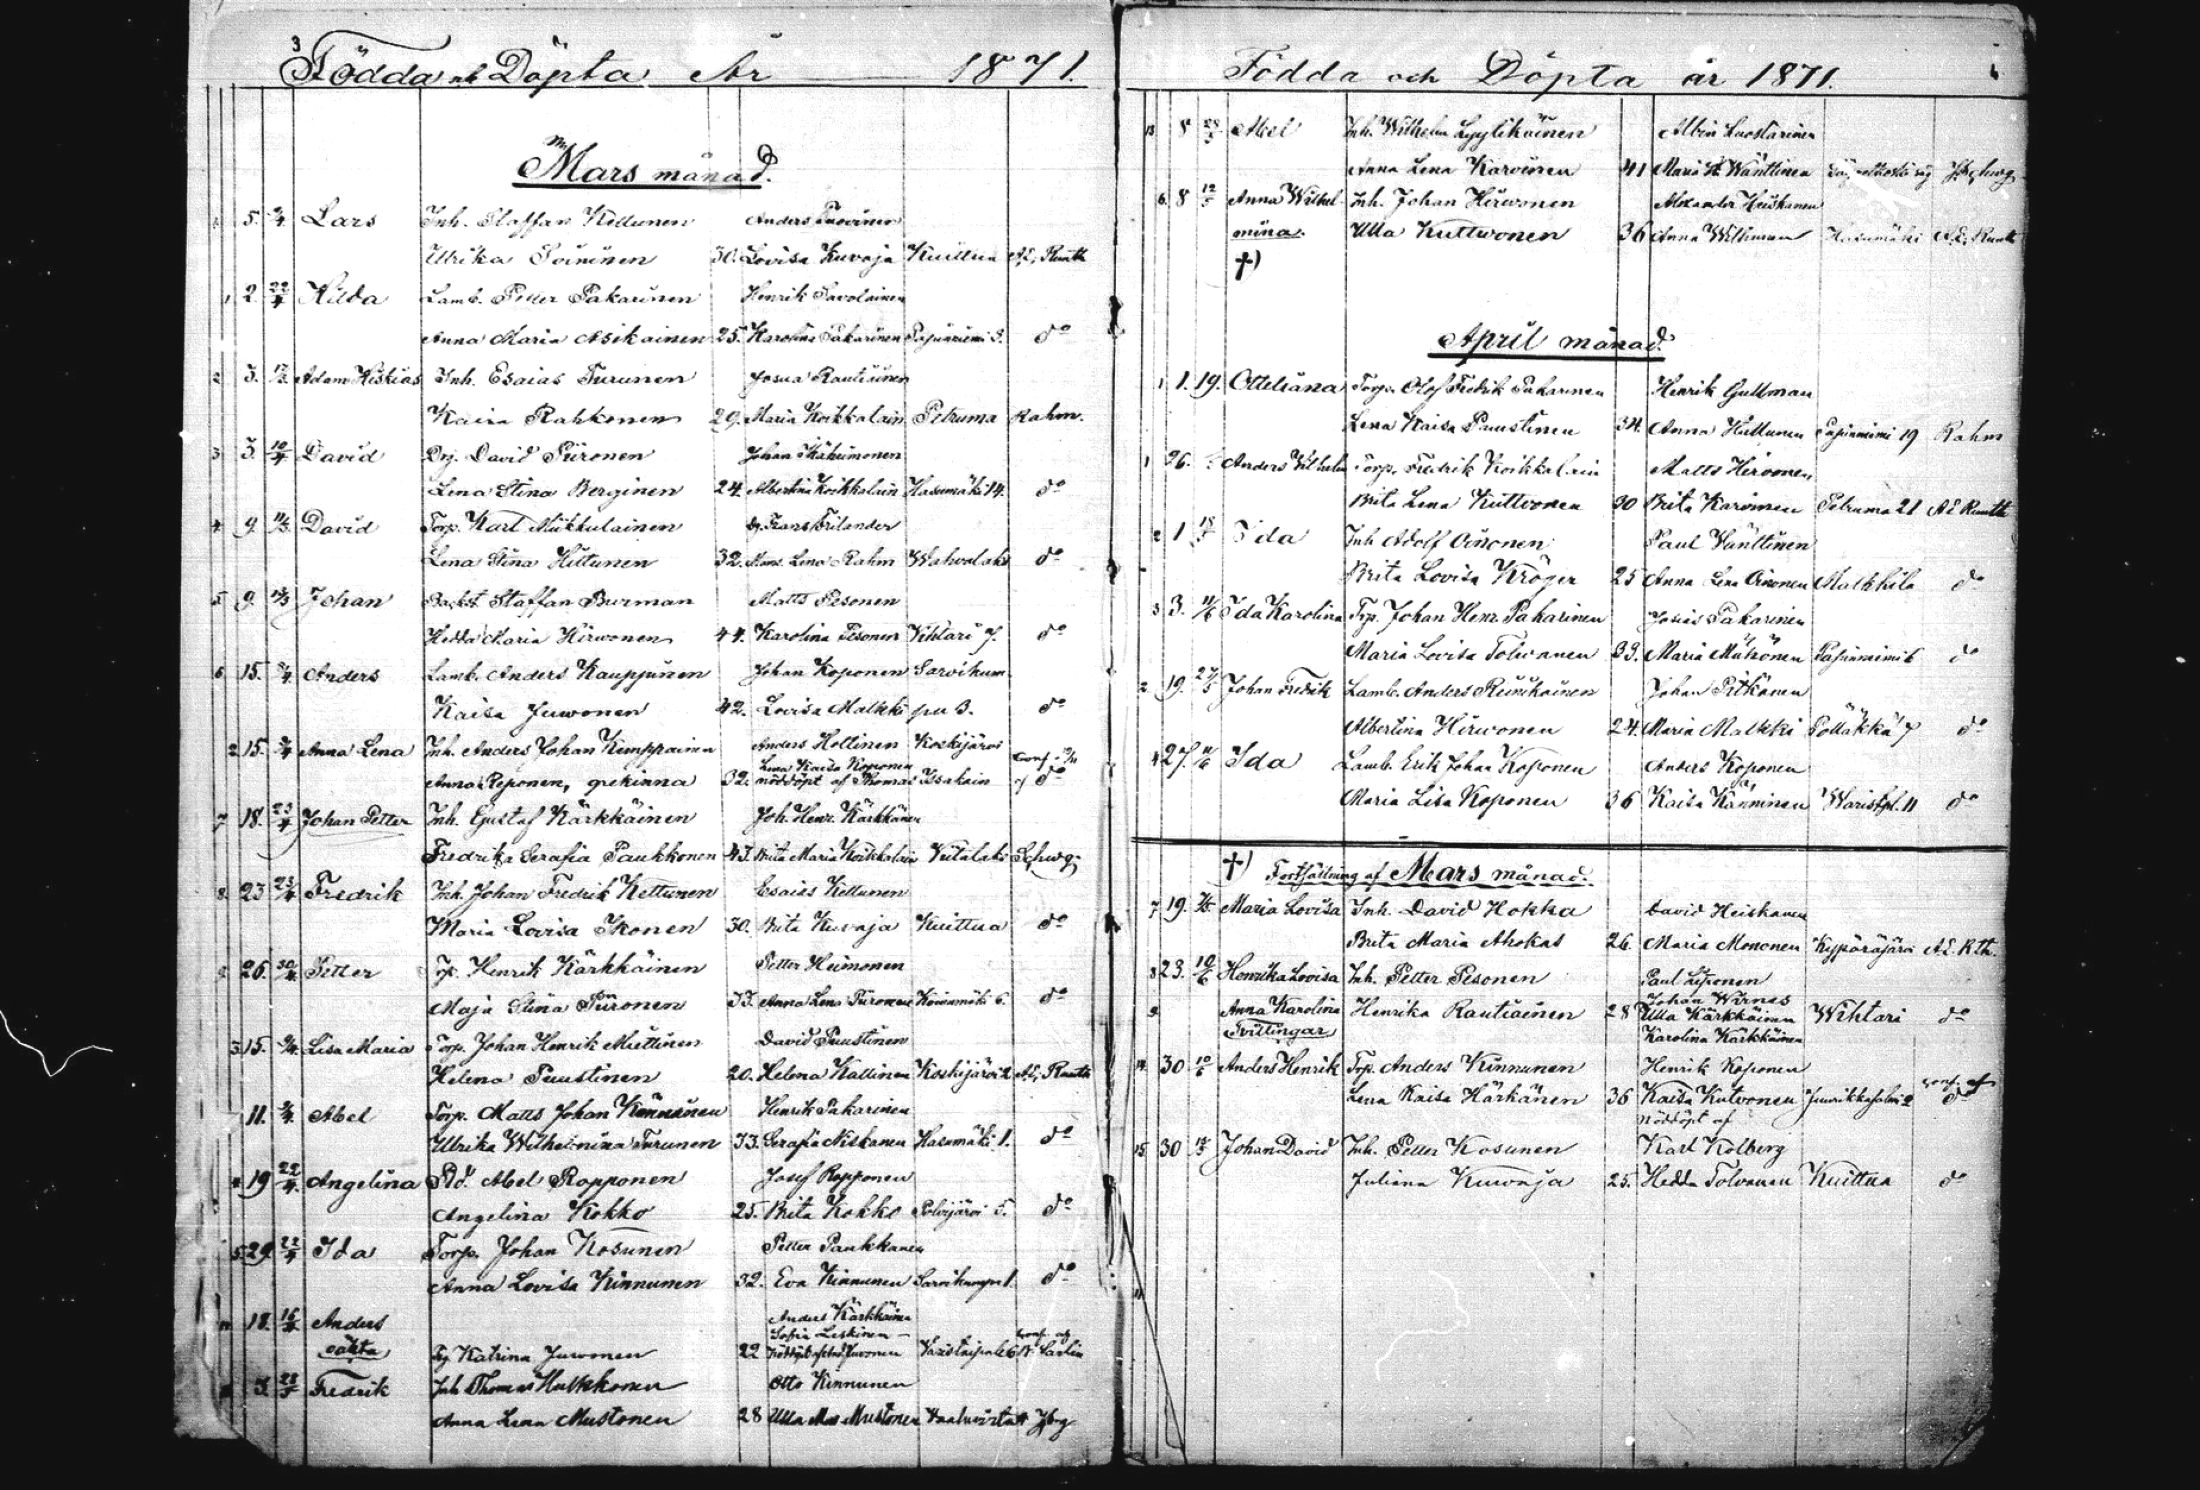 3
Födda och Döpta År 1871.
Mars månad.
5. Lars Inh. Staffan Kettunen Anders Tuovinen
Ulrika Soininen 30. Lovisa Kuvaja Kuittua A.E. Ruuth
1 2. 22/4 Hilda Lamb. Petter Pakarinen Henrik Savolainen
Anna Maria Asikainen 25. Karolina Pakarinen Papinniemi 3. do
2 3. Adam Hiskias Inh. Esaias Turunen Josua Rautiainen
Kaisa Rahkonen 29. Maria Koikkalain Petruma Rahm.
3 3. 10/4 David Drg. David Piironen Johan Ikäheimonen
Lena Stina Berginen 24. Albertina Koikkalain Hasumäki 14. do
4 9. 11/3 David Torp. Karl Miikkulainen Frans Frilander
Lena Stina Hiltunen 32. Lena Rahm Wahvalaks do
5 9. Johan Backst. Staffan Burman Matts Pesonen
Hedda Maria Hirwonen 44. Karolina Pesonen Vihtari 7. do
6 15. Anders Lamb. Anders Kauppinen Johan Koponen Sarvikum
Kaisa Juwonen 42. Lovisa Malkki pu 3. do
2. 15. Anna Lena Inh. Anders Johan Kemppainen Anders Holtinen Koskijärvi
Lena Kaisa Koponen conf.
Anna Reponen, grekinna 32. nöddöpt af Thomas Issakain af do
7 18. 23/4 Johan Petter Inh. Gustaf Kärkkäinen Joh. Henr. Kärkkäinen
Fredrika Serafia Paukkonen 43. Brita Maria Koikkalain Vitalaks Schwg.
8. 23 23/4 Fredrik Inh. Johan Fredrik Kettunen Esaias Kettunen
Maria Lovisa Ikonen 30. Brita Kuvaja Kuittua do
9. 26. 30/4 Petter Torp. Henrik Kärkkäinen Petter Heimonen
Maja Stina Piironen 33. Anna Lena Piironen 6. do
3. 15. Lisa Maria Torp. Johan Henrik Miettinen David Puustinen
Helena Puustinen 20. Helena Kallinen Koskijärvi 2 A.E. Ruuth
11. Abel Torp. Matts Johan Kinnunen Henrik Pakarinen
Ulrika Wilhelmina Turunen 33. Serafia Niskanen Hasumäki 1. do
19 22/4 Angelina Abel Ropponen Josef Ropponen
Angelina Kokko 25. Brita Kokko Polvijärvi 5. do
5. 29. 22/4 Ida Torp. Johan Kosunen Petter Paukkanen
Anna Lovisa Kinnunen 32. Eva Kinnunen Sarvikumpu 1. do
18. 16/4 Anders Anders Kärkkäinen
Sofia Leskinen conf. af
oäkta Katrina Juwonen 22 Juvonen Varistaipale 6
3. 28/5 Fredrik Inh. Thomas Hulkkonen Otto Kinnunen
Anna Lena Mustonen 28 Ulla Mustonen
Födda och Döpta år 1871.
13 8 28/5 Abel Inh. Wilhelm Lyylikäinen Albin Luostarinen
Anna Lena Karvinen 41 Maria Wänttinen
6. 8 12/5 Anna Wilhel- Inh. Johan Hirwonen Alexander Heiskanen
mina. Ulla Kuttwonen 36 Anna Hasumäki A.E. Ruuth
†)
April månad.
1 1. 19. Otteliana Torp. Olof Fredrik Pakarinen Henrik Gullman
Lena Kaisa Puustinen 34. Anna Huttunen Papinniemi 19 Rahm
1 26. Anders Vilhelm Torp. Fredrik Koikkalain Matts Hirvonen
Brita Lena Kuttvonen 30 Brita Karvinen Petruma 21 A E Ruuth
2 1 18/5 Ida Inh Adolf Oinonen Paul Wänttinen
Brita Lovisa Kröger 25 Anna Lena Oinonen Malkkila do
3 3. 11/6 Ida Karolina Torp. Johan Henr. Pakarinen Josias Pakarinen
Maria Lovisa Tolwanen 39. Maria Papinniemi 6 do
2 19. 27/5 Johan Fredrik Lamb. Anders Riinikainen Johan Pitkänen
Albertina Hirwonen 24. Maria Malkki Pölläkkä 7 do
4 27. 11/6 Ida Lamb. Erik Johan Koponen Anders Koponen
Maria Lisa Koponen 36 Kaisa Känninen Waristpl. 11 do
†) Fortsättning af Mars månad.
7 19. Maria Lovisa Inh. David Hokka David Heiskanen
Brita Maria Ahokas 26. Maria Mononen Kypäräjärvi A.E. Rth.
8 23. 10/6 Henrika Lovisa Inh. Petter Pesonen Paul Leponen
Johan Wirnes
9 Anna Karolina Henrika Rautiainen 28 Ulla Kärkkäinen Wihtari do
Tvillingar Karolina Kärkkäinen
14 30 10/6 Anders Henrik Torp. Anders Kinnunen Henrik Koponen
conf. af
Lena Kaisa Härkänen 36 Kaisa Kutvonen Juurikkasalmi 2 do
nöddöpt af
15 30 Johan David Inh. Petter Kosunen Karl Kolberg
Juliana Kuwaja 25. Hedda Tolvanen Kuittua do